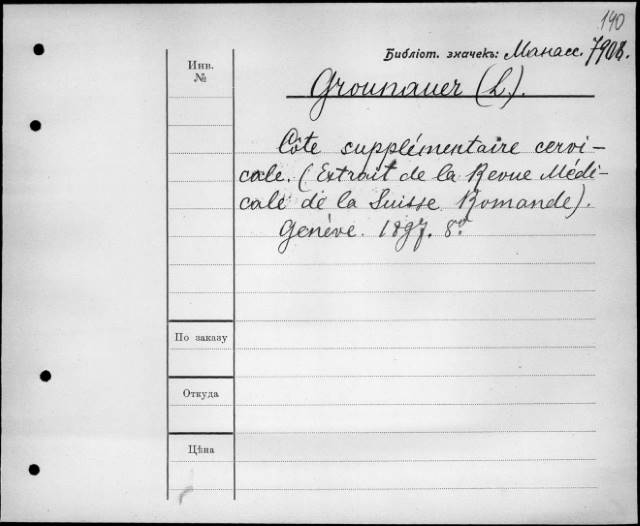 190
Библіот. значекъ: Манасс. 7908.
Инв.
№
Grounauer (L).
Côte supplémentaire cervi-
cale. (Extrait de la Revue Médi-
cale de la Suisse Romande).
Genève. 1897. 8º
По заказу
Откуда
Цѣна